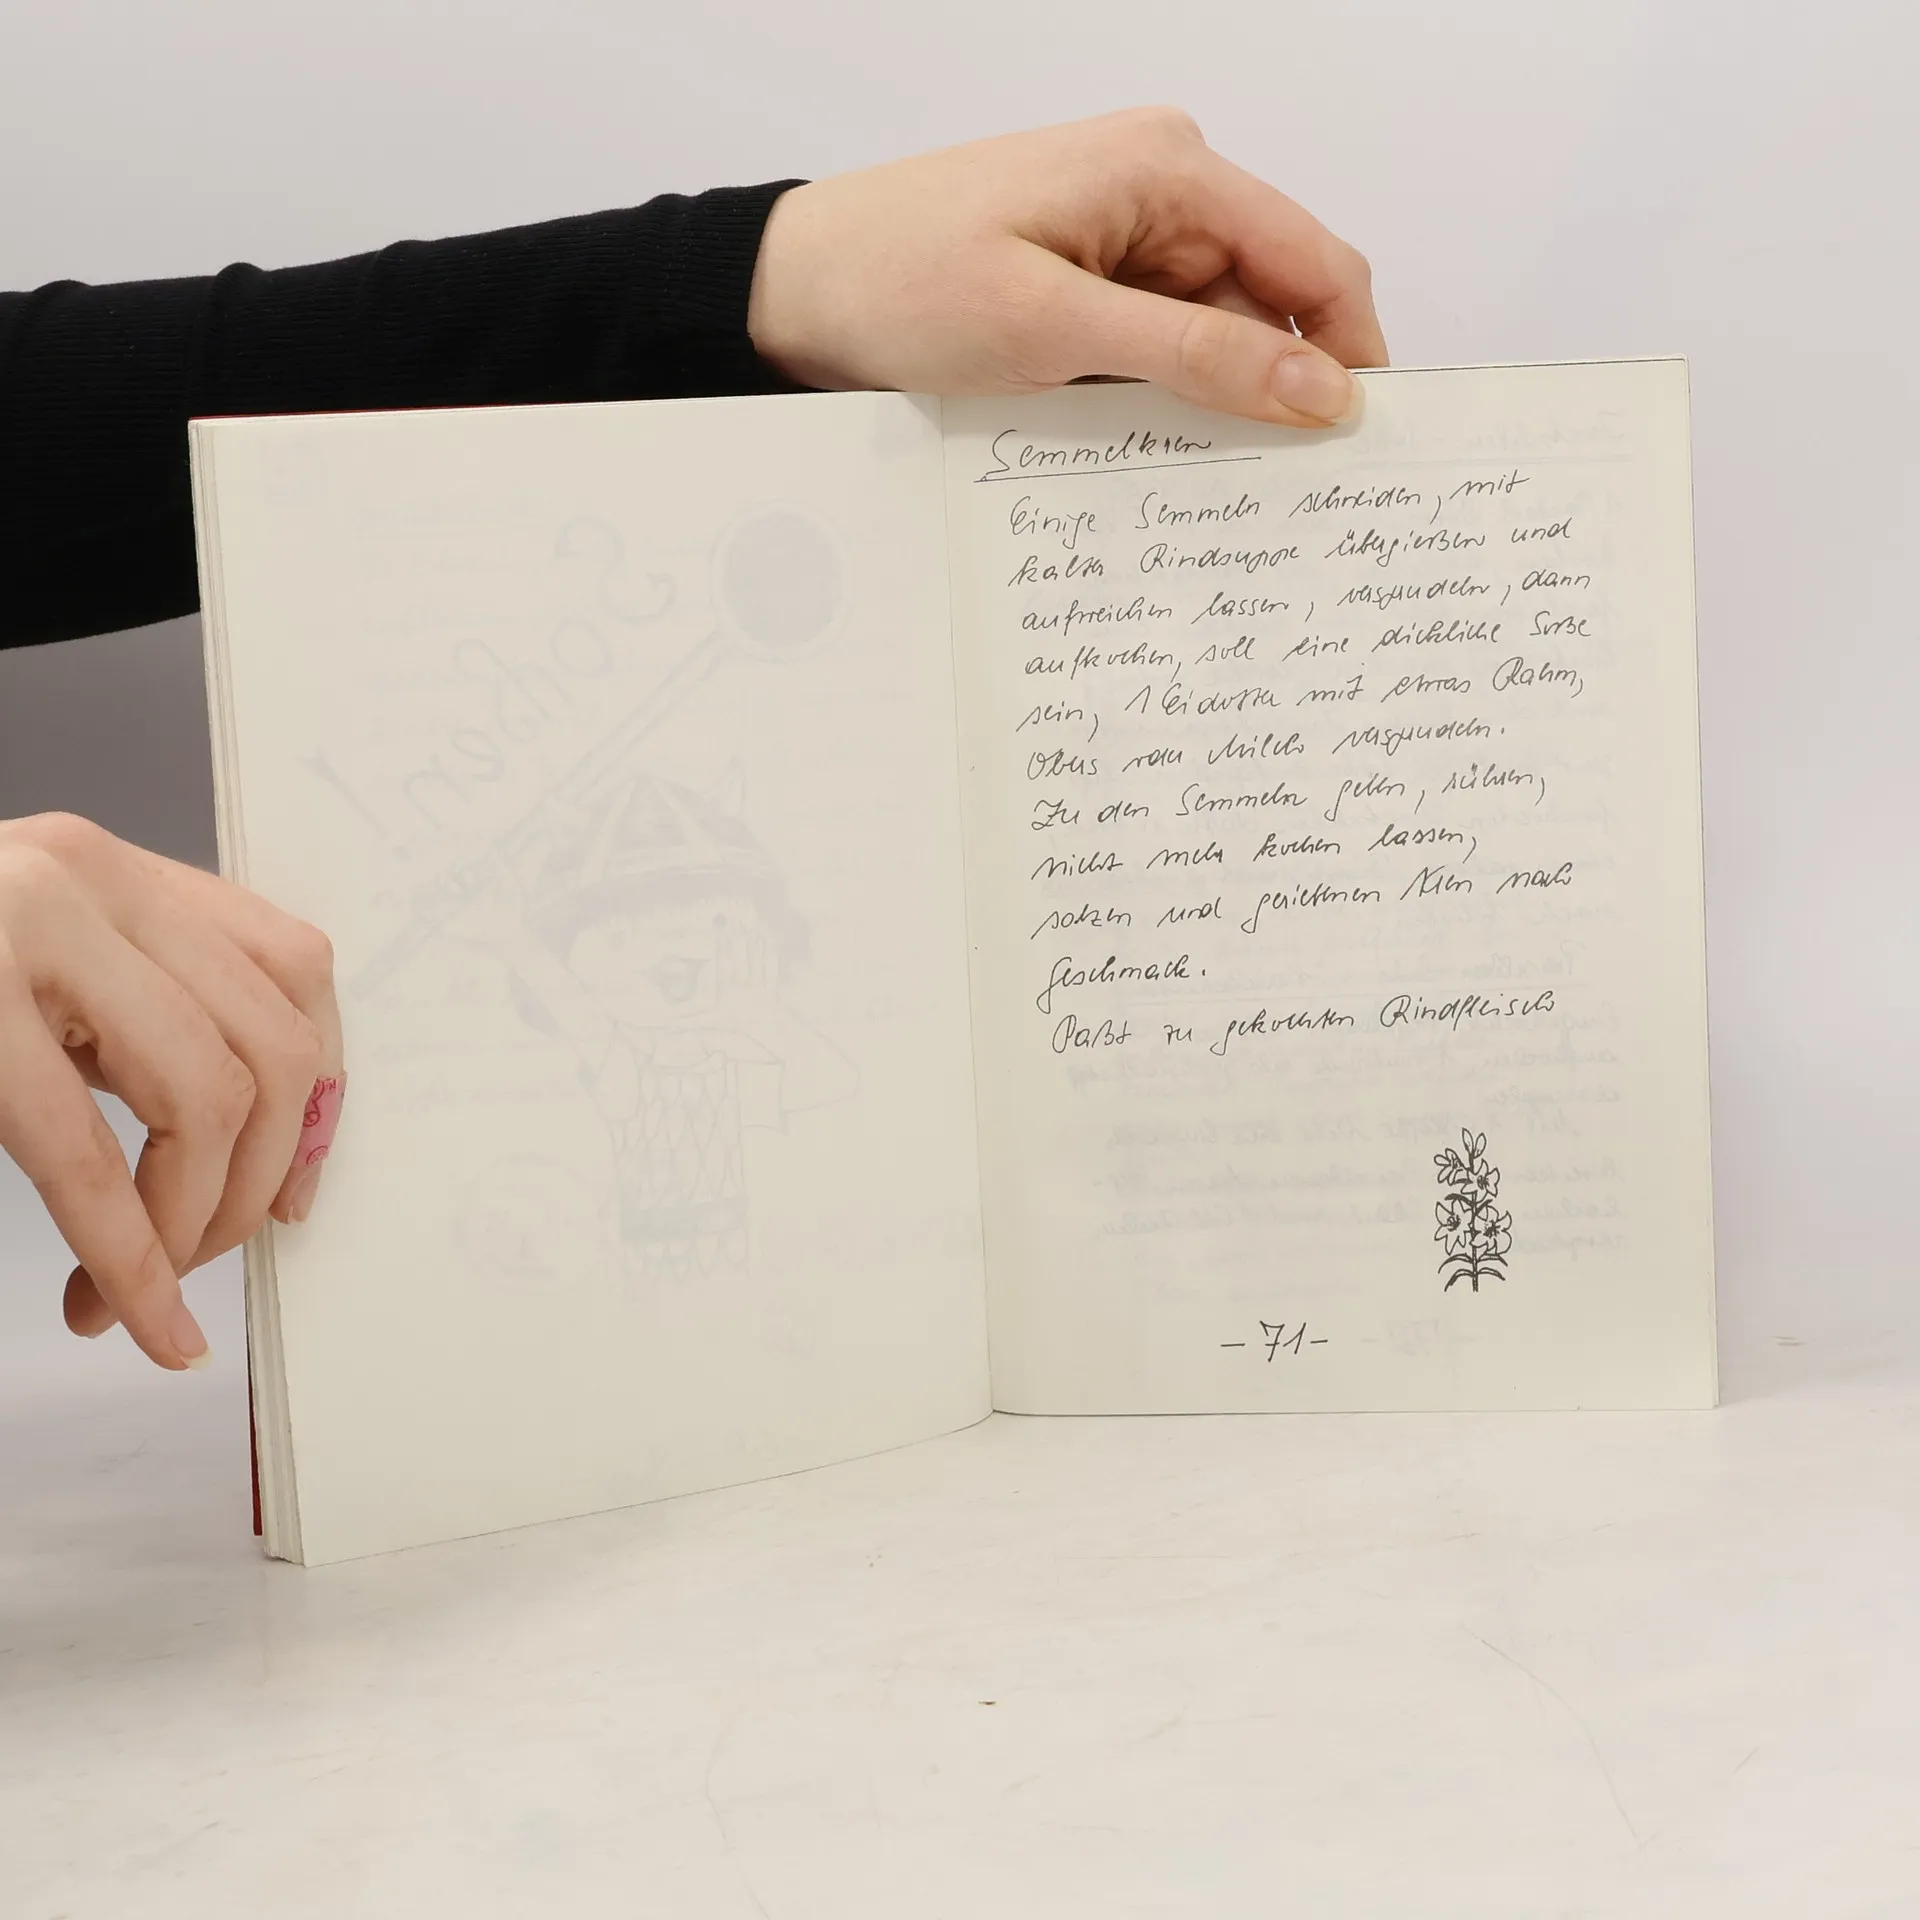 Semmelkren
Einige Semmeln schneiden, mit
kalter Rindsuppe übergießen und
aufweichen lassen, versprudeln, dann
aufkochen, soll eine dickliche Soße
sein, 1 Eidotter mit etwas Rahm,
Obers oder Milch versprudeln.
Zu den Semmeln geben, rühren,
nicht mehr kochen lassen,
salzen und geriebenen Kren nach
Geschmack.
Paßt zu gekochten Rindfleisch
- 71 -